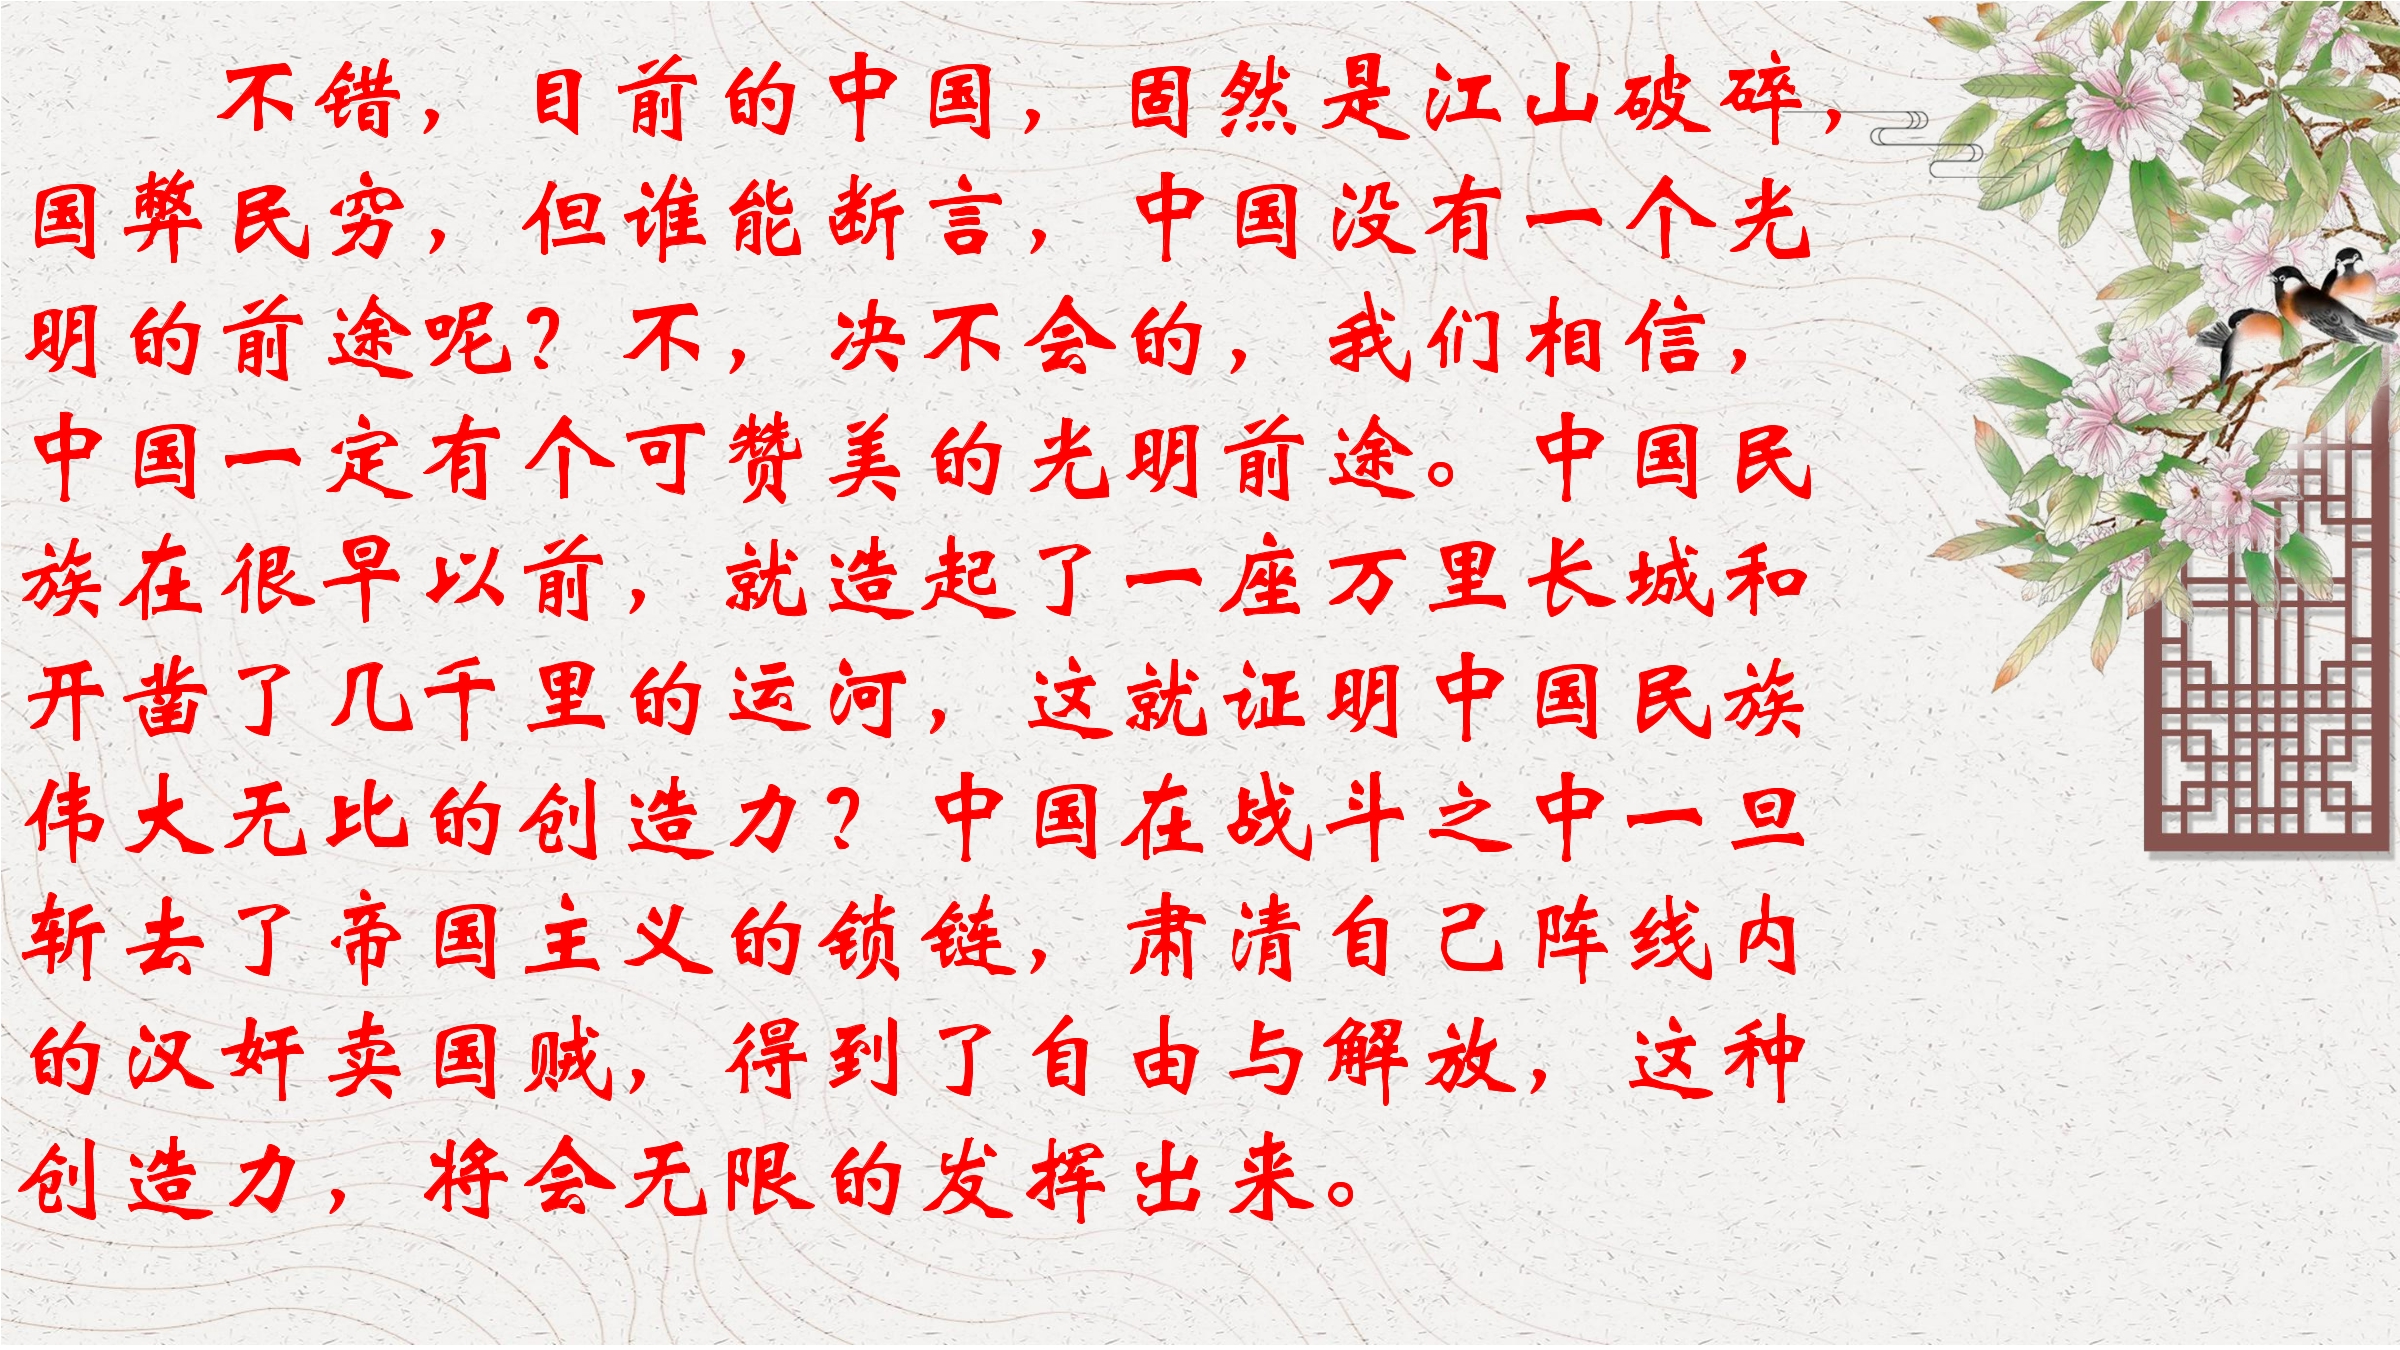 不错，目前的中国，固然是江山破碎，
国弊民穷，但谁能断言，中国没有一个光
明的前途呢？不，决不会的，我们相信，
中国一定有个可赞美的光明前途。中国民
族在很早以前，就造起了一座万里长城和
开凿了几千里的运河，这就证明中国民族
伟大无比的创造力？中国在战斗之中一旦
斩去了帝国主义的锁链，肃清自己阵线内
的汉奸卖国贼，得到了自由与解放，这种
创造力，将会无限的发挥出来。